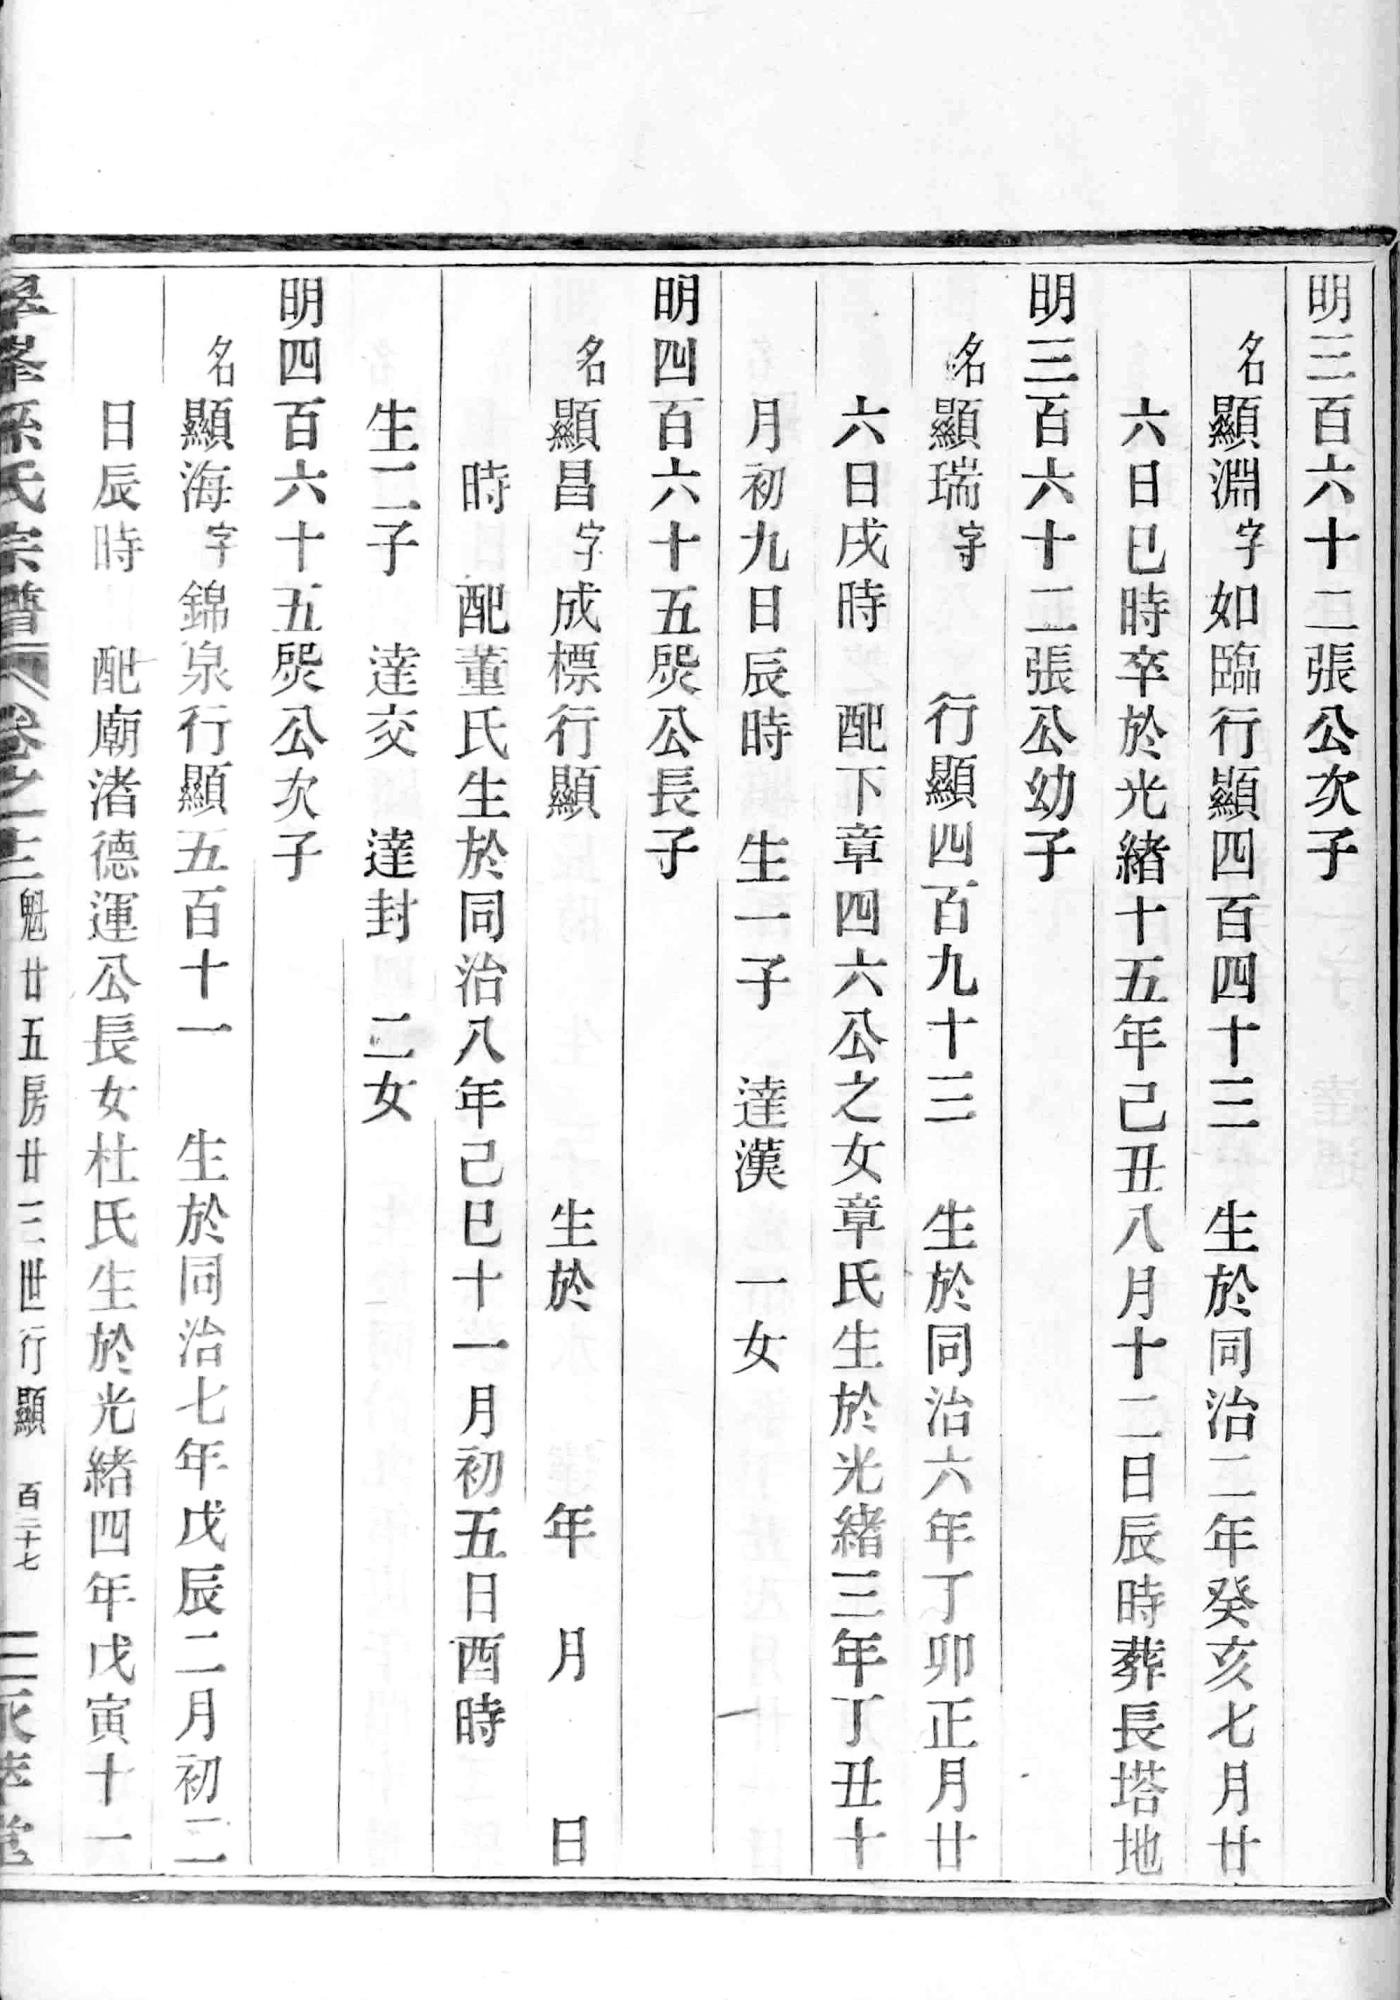 明三百六十二張公次子
名顯淵字如臨行顯四百四十三　生於同治二年癸亥七月廿
六日巳時卒於光緒十五年己丑八月十二日辰時葬長塔地
明三百六十二張公幼子
名顯瑞字　行顯四百九十三　生於同治六年丁卯正月廿
六日戌時　配下章四六公之女章氏生於光緒三年丁丑十
月初九日辰時　生一子　達漢　一女
明四百六十五煛公長子
名顯昌字成標行顯　生於　年　月　日
時　配董氏生於同治八年己巳十一月初五日酉時
生二子　達交　達封　二女
明四百六十五煛公次子
名顯海字錦泉行顯五百十一　生於同治七年戊辰二月初二
日辰時　配廟渚德運公長女杜氏生於光緒四年戊寅十一
孫氏宗譜　卷之十三　魁廿五房廿三世行顯　百二十七　萃堂